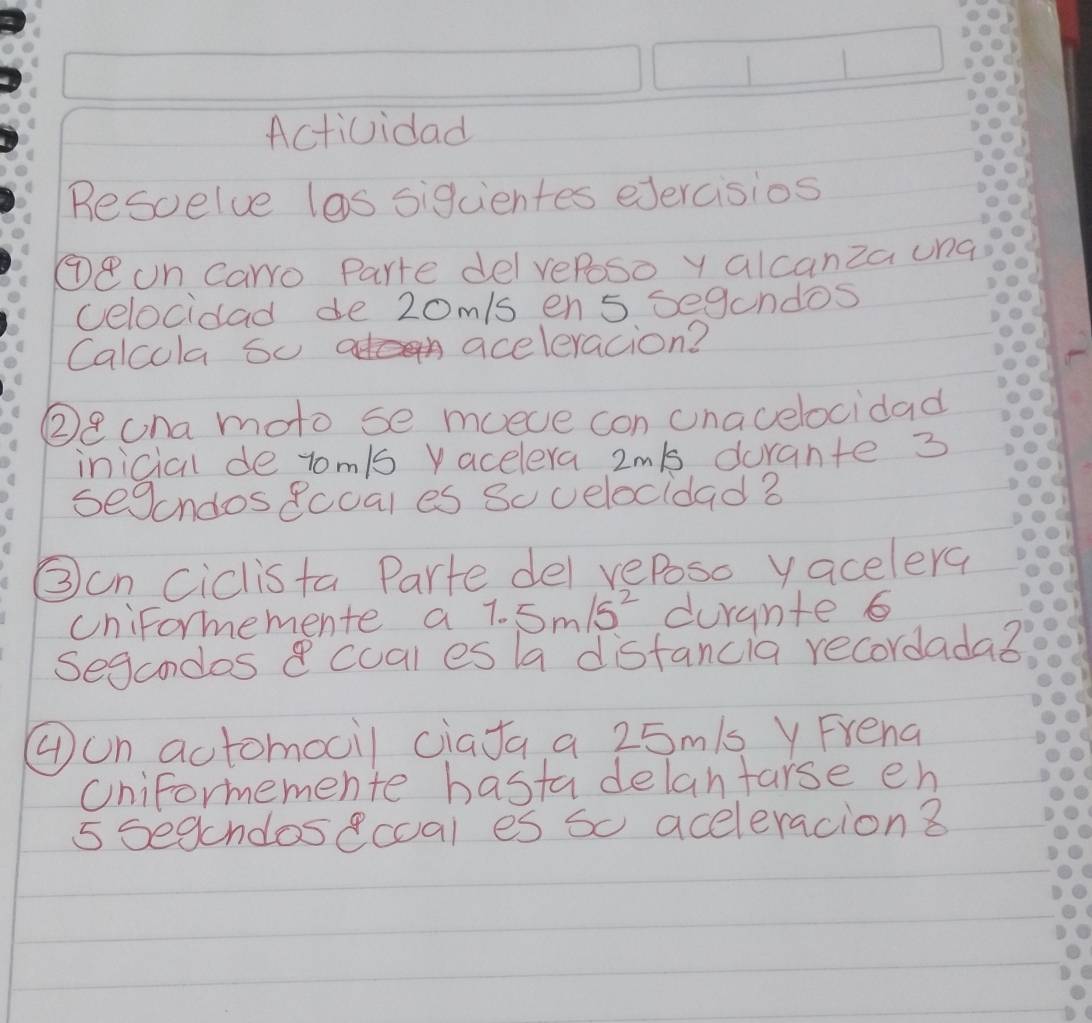 Actividad
Resuelve las siguientes ejercisios
① ¿un carro parte del reposo y alcanza una
velocidad de 20m/s en 5 segundos
Calcula su aceleracion?
② ¿una moto se mueve con una velocidad
inicial de 10m/s y acelera 2m/s durante 3
segundos ¿cual es su velocidad?
③ un ciclista parte del reposo y acelera
uniformemente a 1.5m/s² durante 6
segundos ¿cual es la distancia recordada?
④ un automovil viaja a 25m/s y Frena
uniformemente hasta delantarse en
5 segundos ¿cual es su aceleracion?